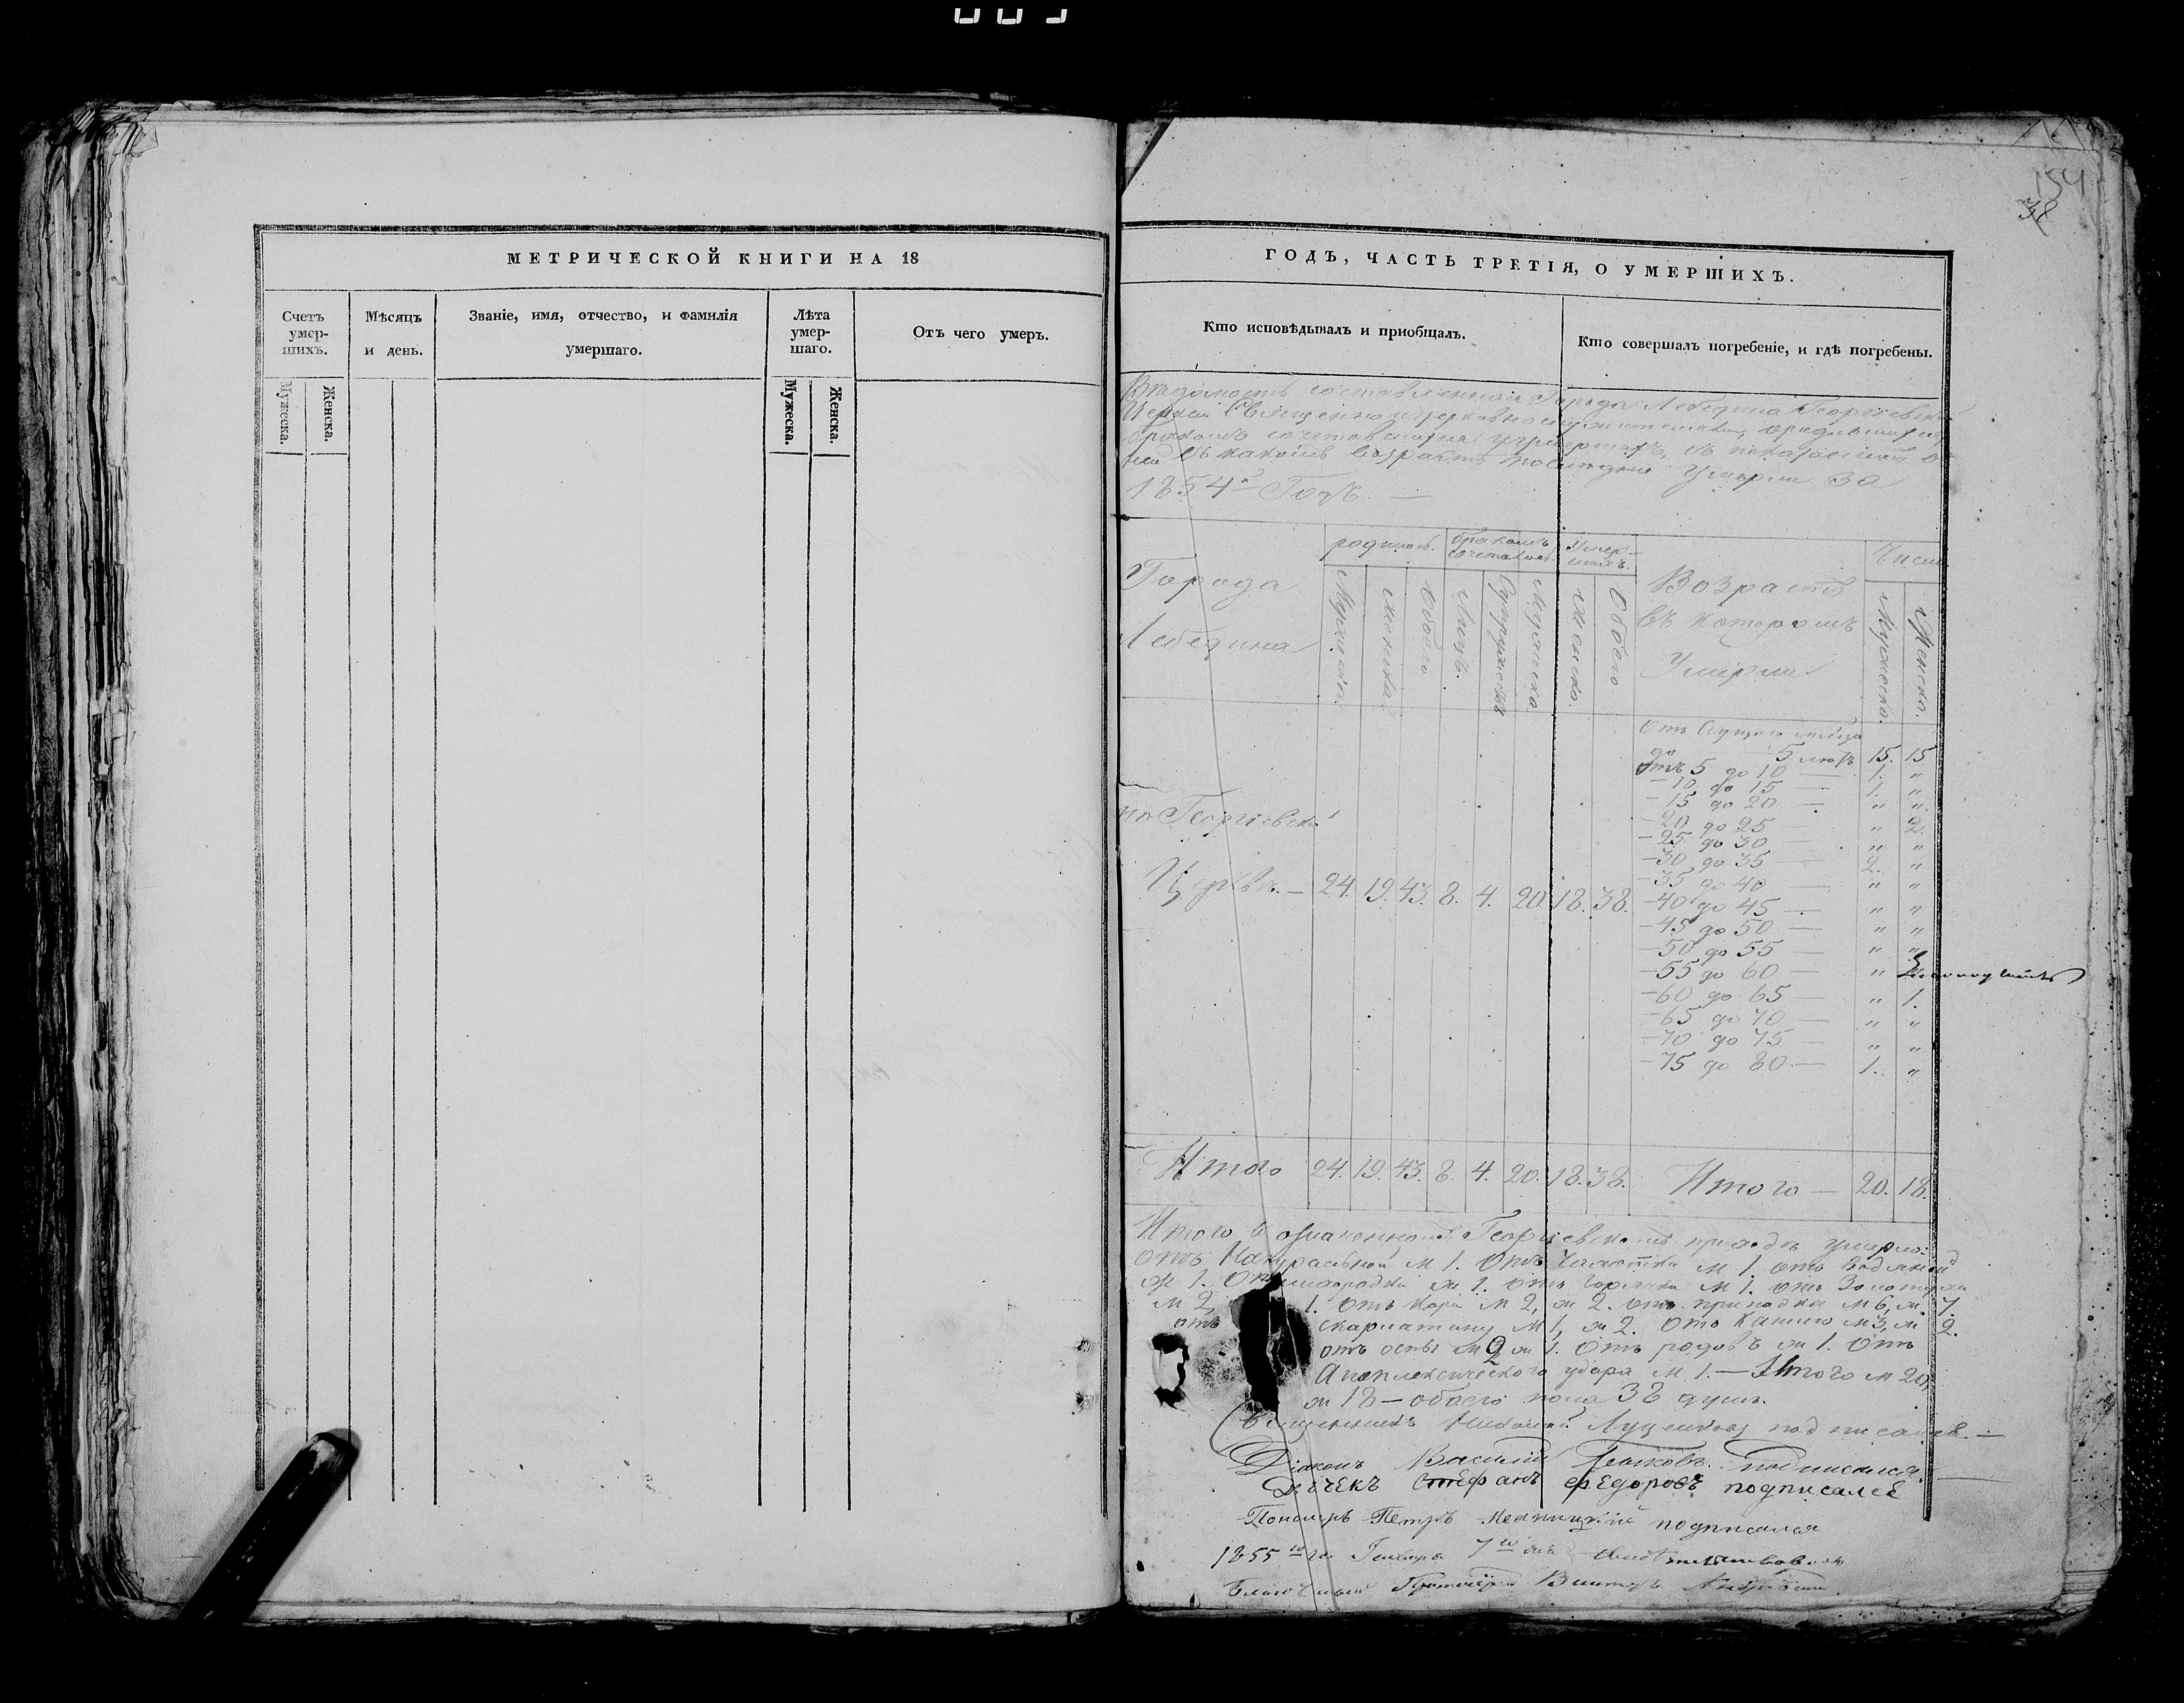 154
38
МЕТРИЧЕСКОЙ КНИГИ НА 18
Счетъ умершихъ.
Мѣсяцъ и день.
Званіе, имя, отчество, и фамилія умершаго.
Лѣта умершаго.
Отъ чего умеръ.
Мужеска.
Женска.
Мужеска.
Женска.
ГОДЪ, ЧАСТЬ ТРЕТІЯ, О УМЕРШИХЪ.
Кто исповѣдывалъ и приобщалъ.
Кто совершалъ погребеніе, и гдѣ погребены.
Вѣдомость составленная Города Лебедина Георгіевской
Церкви Священноцерковнослужителями, о родившихся
бракомъ сочетавшихся
въ какомъ возрастѣ Умерли за
1854й Годъ.
Города Лебедина
родилось.
бракомъ сочеталось
Умершихъ.
Возрастъ въ которомъ Умерли
Число
Мужеска.
Женска.
Обоего
Лицъ.
Супружествъ
Мужеска.
Женска.
Обоего
Мужеска.
Женска.
до 5 лѣтъ 15. 15
отъ 5 до 10 — 1. "
— 10 до 15 — 1. "
— 15 до 20 — " "
— 20 до 25 — " 2.
— 25 до 30 — " "
— 30 до 35 — 2. "
— 35 до 40 — " "
— 40 до 45 — " "
— 45 до 50 — " "
— 50 до 55 — " "
— 55 до 60 — "
— 60 до 65 — " 1.
— 65 до 70 — " "
— 70 до 75 — " "
— 75 до 80 — 1. "
по Георгіевской
Церкви. — 24. 19. 43. 8. 4. 20. 18. 38.
Итого 24. 19. 43. 8. 4. 20. 18. 38. Итого — 20. 18.
Итого въ означенномъ Георгіевскомъ приходѣ умерло:
отъ Натуральной м 1. отъ м 1. отъ водяной
ж 1. ж 1. отъ горячки м 1. отъ Золотухи
м 2, 1. отъ Кори м 2, ж 2. отъ припадка м 6, ж 7.
отъ скарлатину м 1, ж 2. отъ Кашлю м 3, ж 2.
отъ оспы м 2 ж 1. отъ родовъ ж 1. отъ
Апоплексическаго удара м 1. — Итого м 20,
ж 18 — обоего пола 38 душъ.
Священникъ Николай подписался. —
Діаконъ Василій подписался.
Дьячекъ Стефанъ Федоровъ подписалсе
Пономарь Петръ подписался
1855 го года Генваря 7 го дня
Благочинный Протоіерей